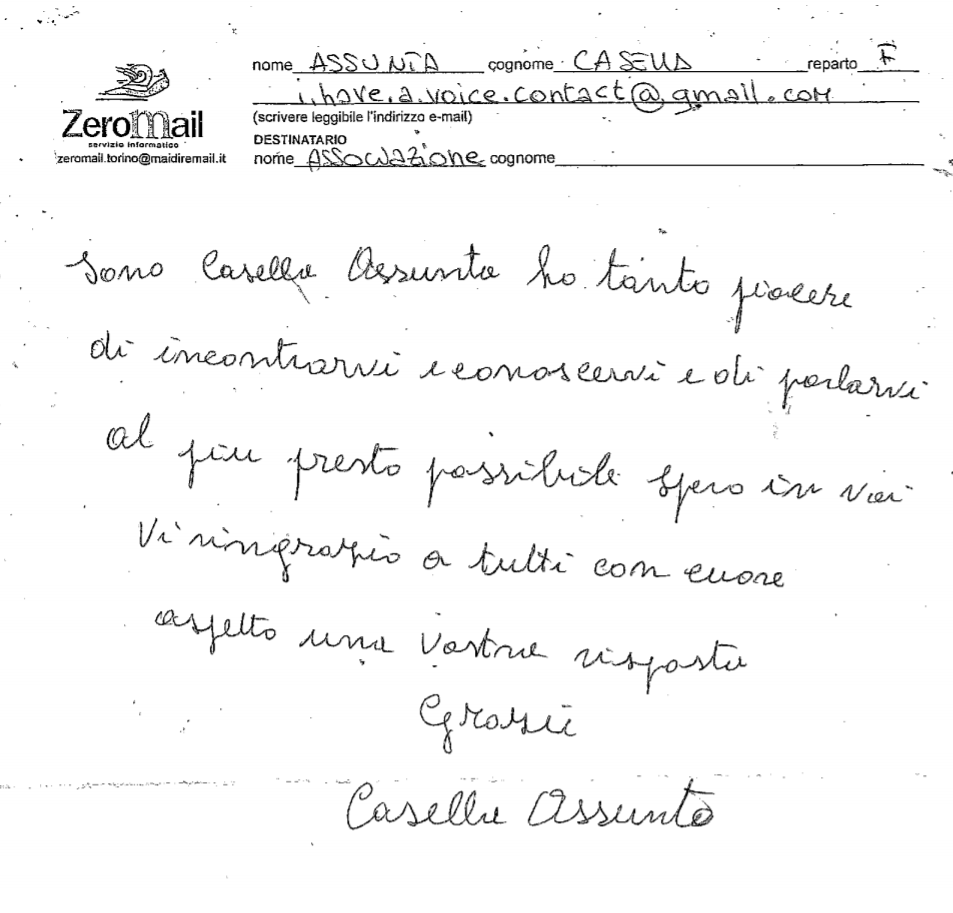 nome ASSUNTA cognome CASELLA reparto F
i.have.a.voice.contact@gmail.com
(scrivere leggibile l'indirizzo e-mail)
ZeroMail
servizio informatico
zeromail.torino@maidiremail.it
DESTINATARIO
nome ASSOCIAZIONE cognome
Sono Casella Assunta ho tanto piacere
di incontrarvi e conoscervi e di parlarvi
al piu presto possibile spero in voi
Vi ringrazio a tutti con cuore
aspetto una vostra risposta
Grazie
Casella Assunta